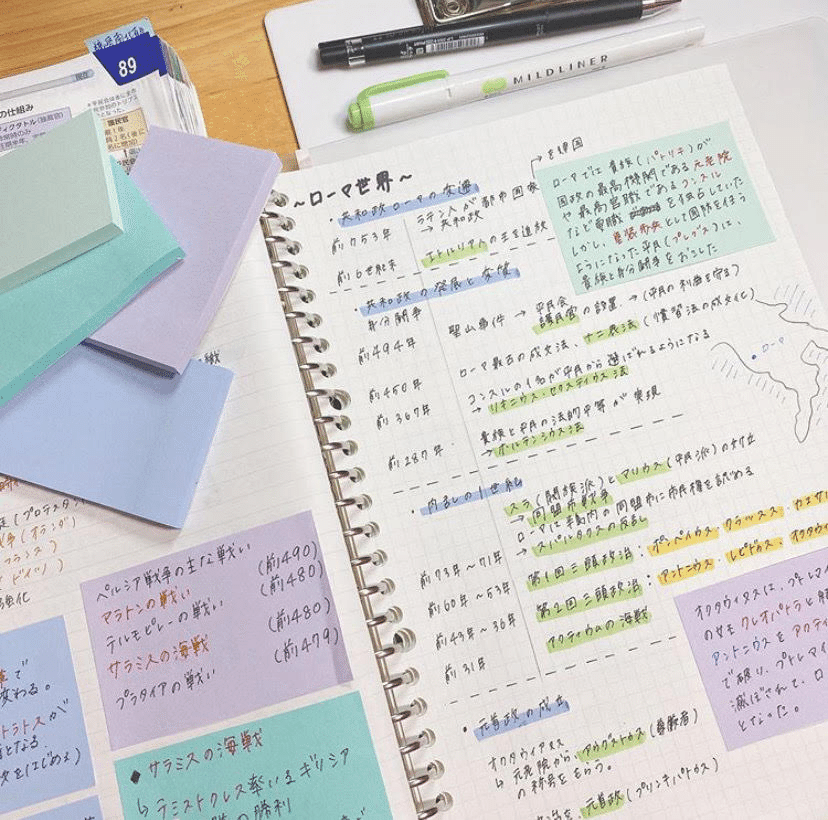 89
の仕組み
護民官
MILDLINER
～ローマ世界～
・共和政ローマの変遷
前753年
ラテン人が都市国家
を建国
→共和政
前6世紀末
エトルリア人の王を追放
ローマでは貴族(パトリキ)が
国政の最高機関である元老院
や最高官職であるコンスル
など要職を独占していた
しかし、重装歩兵として国防を担う
ようになった平民(プレブス)は、
貴族と身分闘争をおこした
共和政の発展と変質
身分闘争
前494年
聖山事件→平民会
護民官の設置→(平民の利益を守る)
前450年
ローマ最古の成文法、十二表法(慣習法の成文化)
前367年
コンスルの1名が平民から選ばれるようになる
→リキニウス・セクスティウス法
前287年
貴族と平民の法的平等が実現
→ホルテンシウス法
ローマ
・内乱の1世紀
スラ(閥族派)とマリウス(平民派)の対立
→同盟市戦争
ローマは半島内の同盟市に市民権を認める
前73年～71年
→スパルタクスの反乱
前60年～53年
第1回三頭政治:ポンペイウス、クラッスス、カエサ
前43年～36年
第2回三頭政治:アントニウス、レピドゥス、オクタウ
前31年
アクティウムの海戦
オクタウィアヌスは、プトレマイ
の女王クレオパトラと
アントニウスをアクティ
で破り、プトレマイ
滅ぼされて、ロ
となった。
・元首政の成立
オクタウィアヌス
↳元老院からアウグストゥス(尊厳者)
の称号をもらう。
元首政(プリンキパトゥス)
ペルシア戦争の主な戦い
マラトンの戦い (前490)
テルモピレーの戦い (前480)
サラミスの海戦 (前480)
プラタイアの戦い (前479)
◆サラミスの海戦
↳テミストクレス率いるギリシア
の勝利
(プロテスタン
(オランダ)
フランス
ドイツ)
強化
で
変わる。
トラトスが
となる
をはじめ)